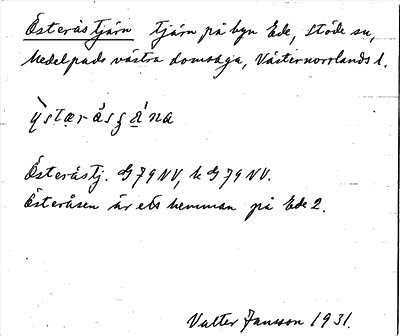 Österåstjärn tjärn på byn Ede, Stöde sn,
Medelpads västra domsaga, Västernorrlands l.
Österåstj. G79NV, k G79NV.
Österåsen är ets hemman på Ede 2.
Valter Jansson 1931.